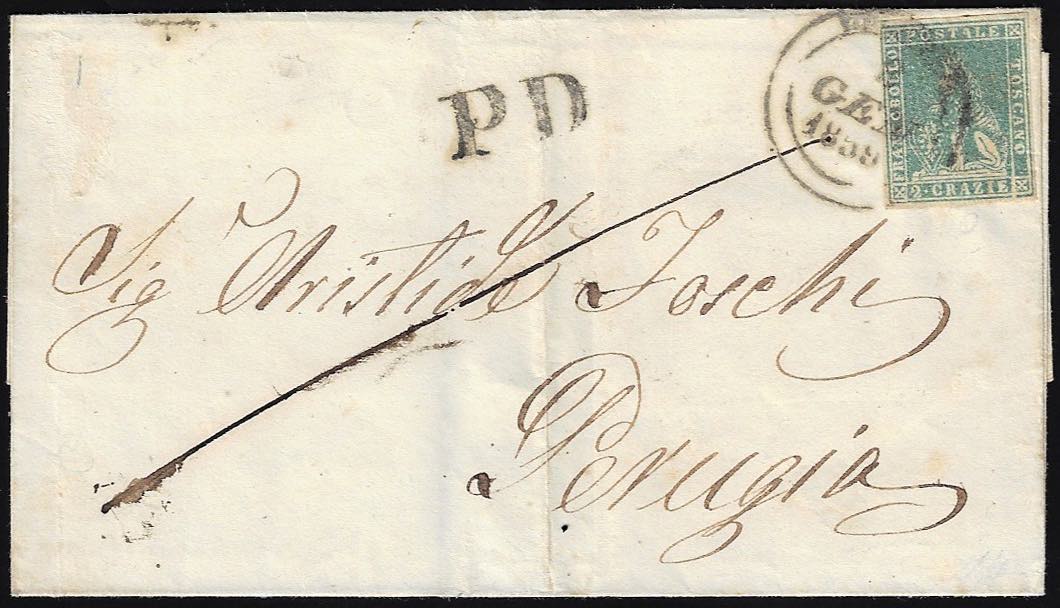 PD
GEN
1859
FRANCOBOLLO POSTALE TOSCANO
2·CRAZIE
Sig Aristide Toschi
Perugia